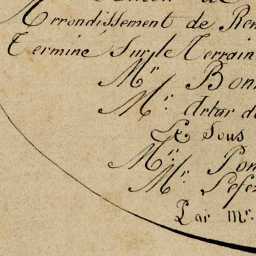 Arrondissement de Ren
Terminé Sur le Terrain
Mr. Bonn
Mr. Artar de
Et Sous
Mr. Pom
Mr. Lefe
Par Mr.